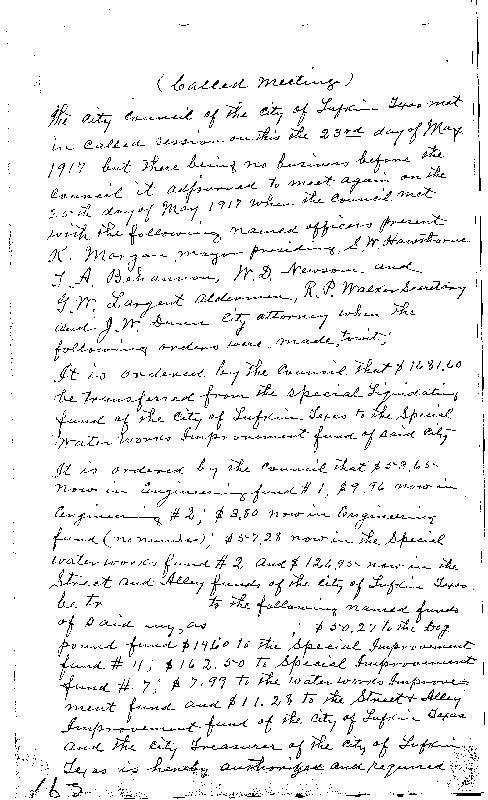 (Called Meeting)
The City Council of the City of Lufkin Texas met
in called session on this the 23rd day of May
1917 but there being no business before the
Council it adjourned to meet again on the
25th day of May 1917 when the Council met
with the following named officers present
K. Morgan mayor presiding, S. W. Hawthorne
T. A. Bohannon, W. D. Newsom and
G. W. Largent Aldermen, R. P. Walker Secretary
and J. W. Dunn City attorney when the
following orders were made, to wit;
It is ordered by the Council that $1681.60
be transferred from the Special Liquidating
fund of the City of Lufkin Texas to the Special
Water Works Improvement fund of said City
It is ordered by the Council that $53.65
now in Engineering fund #1, $9.96 now in
Engineering #2; $3.80 now in Engineering
fund (no number); $57.28 now in the Special
water works fund #2 and $126.95 now in the
Street and Alley funds of the City of Lufkin Texas
be tr to the following named funds
of said as ; $50.27 to the Dog
pound fund $19.60 to the Special Improvement
fund #11; $162.50 to Special Improvement
fund #7; $7.99 to the Water Works Improve-
ment fund and $11.28 to the Street & Alley
Improvement fund of the City of Lufkin Texas
and the City Treasurer of the City of Lufkin
Texas is hereby authorized and required
163